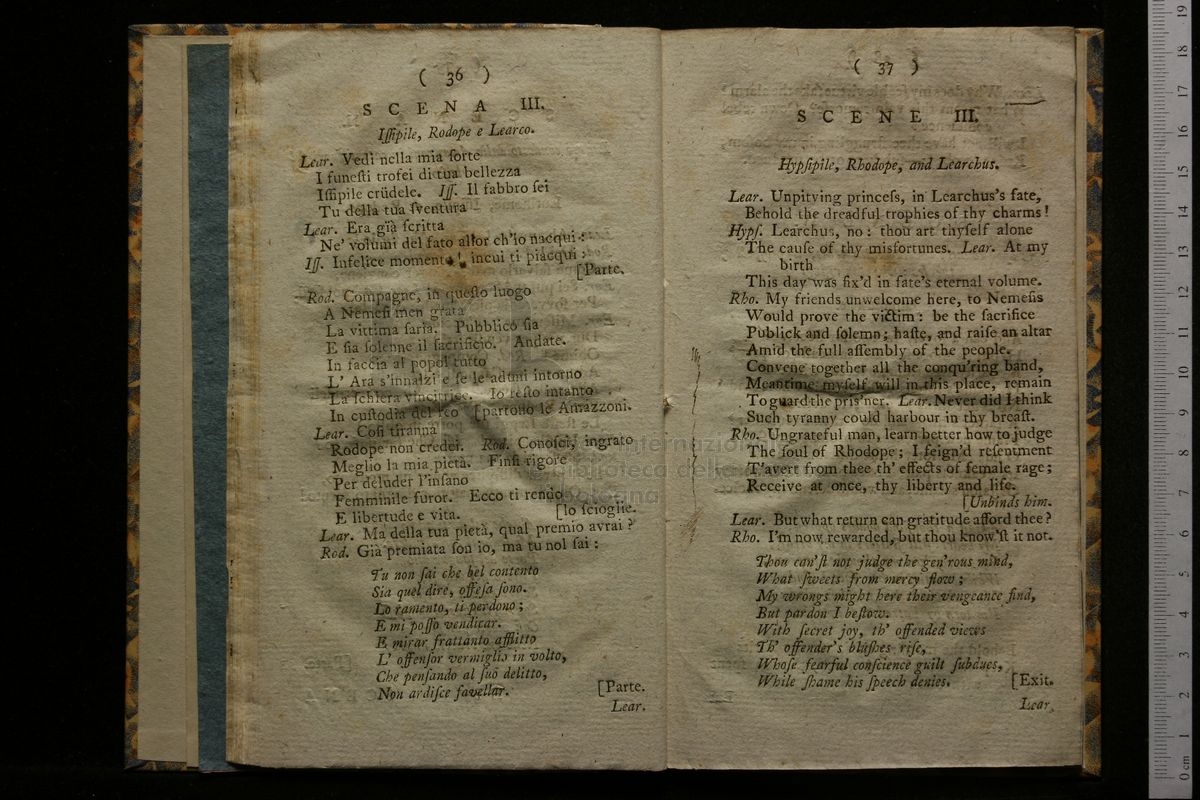 ( 36 )
SCENA III.
Iſſipile, Rodope e Learco.
Lear. Vedi nella mia ſorte
I funeſti trofei di tua bellezza
Iſſipile crudele. Iſſ. Il fabbro ſei
Tu della tua ſventura
Lear. Era già ſcritta
Ne' volumi del fato allor ch'io nacqui:
Iſſ. Infelice momento! incui ti piacqui:
[Parte.
Rod. Compagne, in queſto luogo
A Nemeſi men grata
La vittima ſaria. Pubblico ſia
E ſia ſolenne il ſacrificio. Andate.
In faccia al popol tutto
L' Ara s'innalzi e ſe le aduni intorno
La ſchiera vincitrice. Io reſto intanto
In cuſtodia del reo [partono le Amazzoni.
Lear. Coſi tiranna
Rodope non credei. Rod. Conoſci, ingrato
Meglio la mia pietà. Finſi rigore
Per deluder l'inſano
Femminile furor. Ecco ti rendo
E libertude e vita. [lo ſcioglie.
Lear. Ma della tua pietà, qual premio avrai?
Rod. Già premiata ſon io, ma tu nol ſai:
Tu non ſai che bel contento
Sia quel dire, offeſa ſono.
Lo ramento, ti perdono;
E mi poſſo vendicar.
E mirar frattanto afflitto
L' offenſor vermiglio in volto,
Che penſando al ſuo delitto,
Non ardiſce favellar. [Parte.
Lear.
( 37 )
SCENE III.
Hypſipile, Rhodope, and Learchus.
Lear. Unpitying princeſs, in Learchus's fate,
Behold the dreadful trophies of thy charms!
Hypſ. Learchus, no: thou art thyſelf alone
The cauſe of thy misfortunes. Lear. At my
birth
This day was fix'd in fate's eternal volume.
Rho. My friends unwelcome here, to Nemeſis
Would prove the victim: be the ſacrifice
Publick and ſolemn; haſte, and raiſe an altar
Amid the full aſſembly of the people.
Convene together all the conqu'ring band,
Meantime myſelf will in this place, remain
To guard the pris'ner. Lear. Never did I think
Such tyranny could harbour in thy breaſt.
Rho. Ungrateful man, learn better how to judge
The ſoul of Rhodope; I feign'd reſentment
T'avert from thee th' effects of female rage;
Receive at once, thy liberty and life.
[Unbinds him.
Lear. But what return can gratitude afford thee?
Rho. I'm now rewarded, but thou know'ſt it not.
Thou can'ſt not judge the gen'rous mind,
What ſweets from mercy flow;
My wrongs might here their vengeance find,
But pardon I beſtow.
With ſecret joy, th' offended views
Th' offender's bluſhes riſe,
Whoſe fearful conſcience guilt ſubdues,
While ſhame his ſpeech denies. [Exit.
Lear.